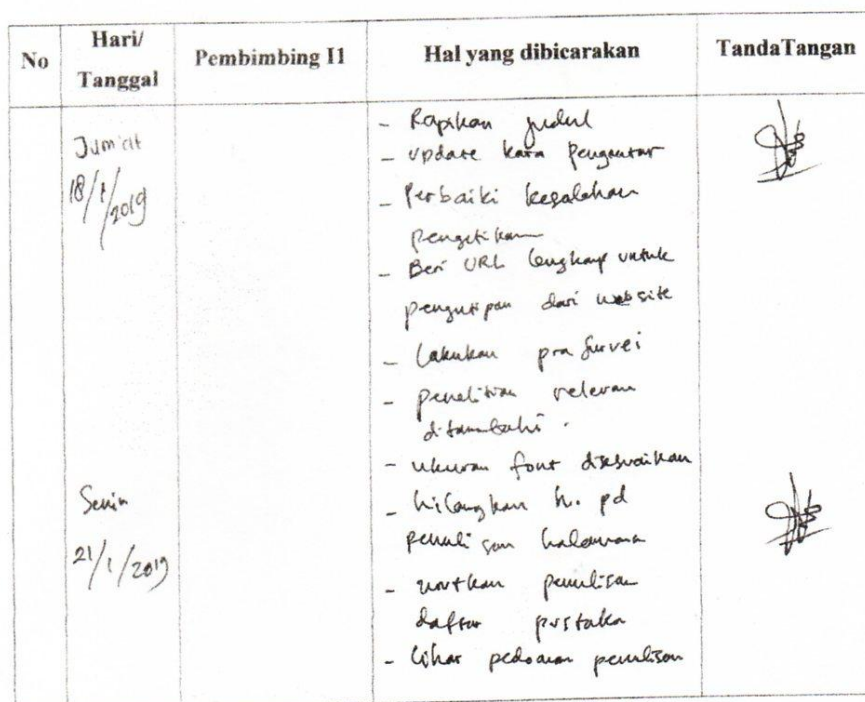 No Hari/ Tanggal Pembimbing I1 Hal yang dibicarakan TandaTangan
Jum'at
18/1/2019
- Rapikan judul
- update kata pengantar
- Perbaiki kesalahan
pengetikan
- Beri URL lengkap untuk
pengutipan dari website
- Lakukan pra survei
- penelitian relevan
ditambahi.
- ukuran font disesuaikan
Senin
21/1/2019
- hilangkan h. pd
penulisan halaman
- urutkan penulisan
daftar pustaka
- lihat pedoman penulisan